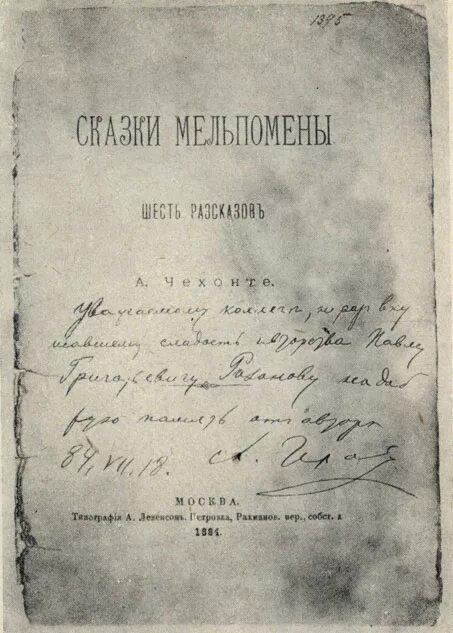 1395
СКАЗКИ МЕЛЬПОМЕНЫ
ШЕСТЬ РАЗСКАЗОВЪ
А. Чехонте.
Уважаемому коллеге, не раз вку
шавшему сладость авторства Павлу
Григорьевичу Розанову на доб
рую память от автора
84, VII, 18. А. Чехов
МОСКВА.
Типографія А. Левенсонъ. Петровка, Рахманов. пер., собст. д
1884.